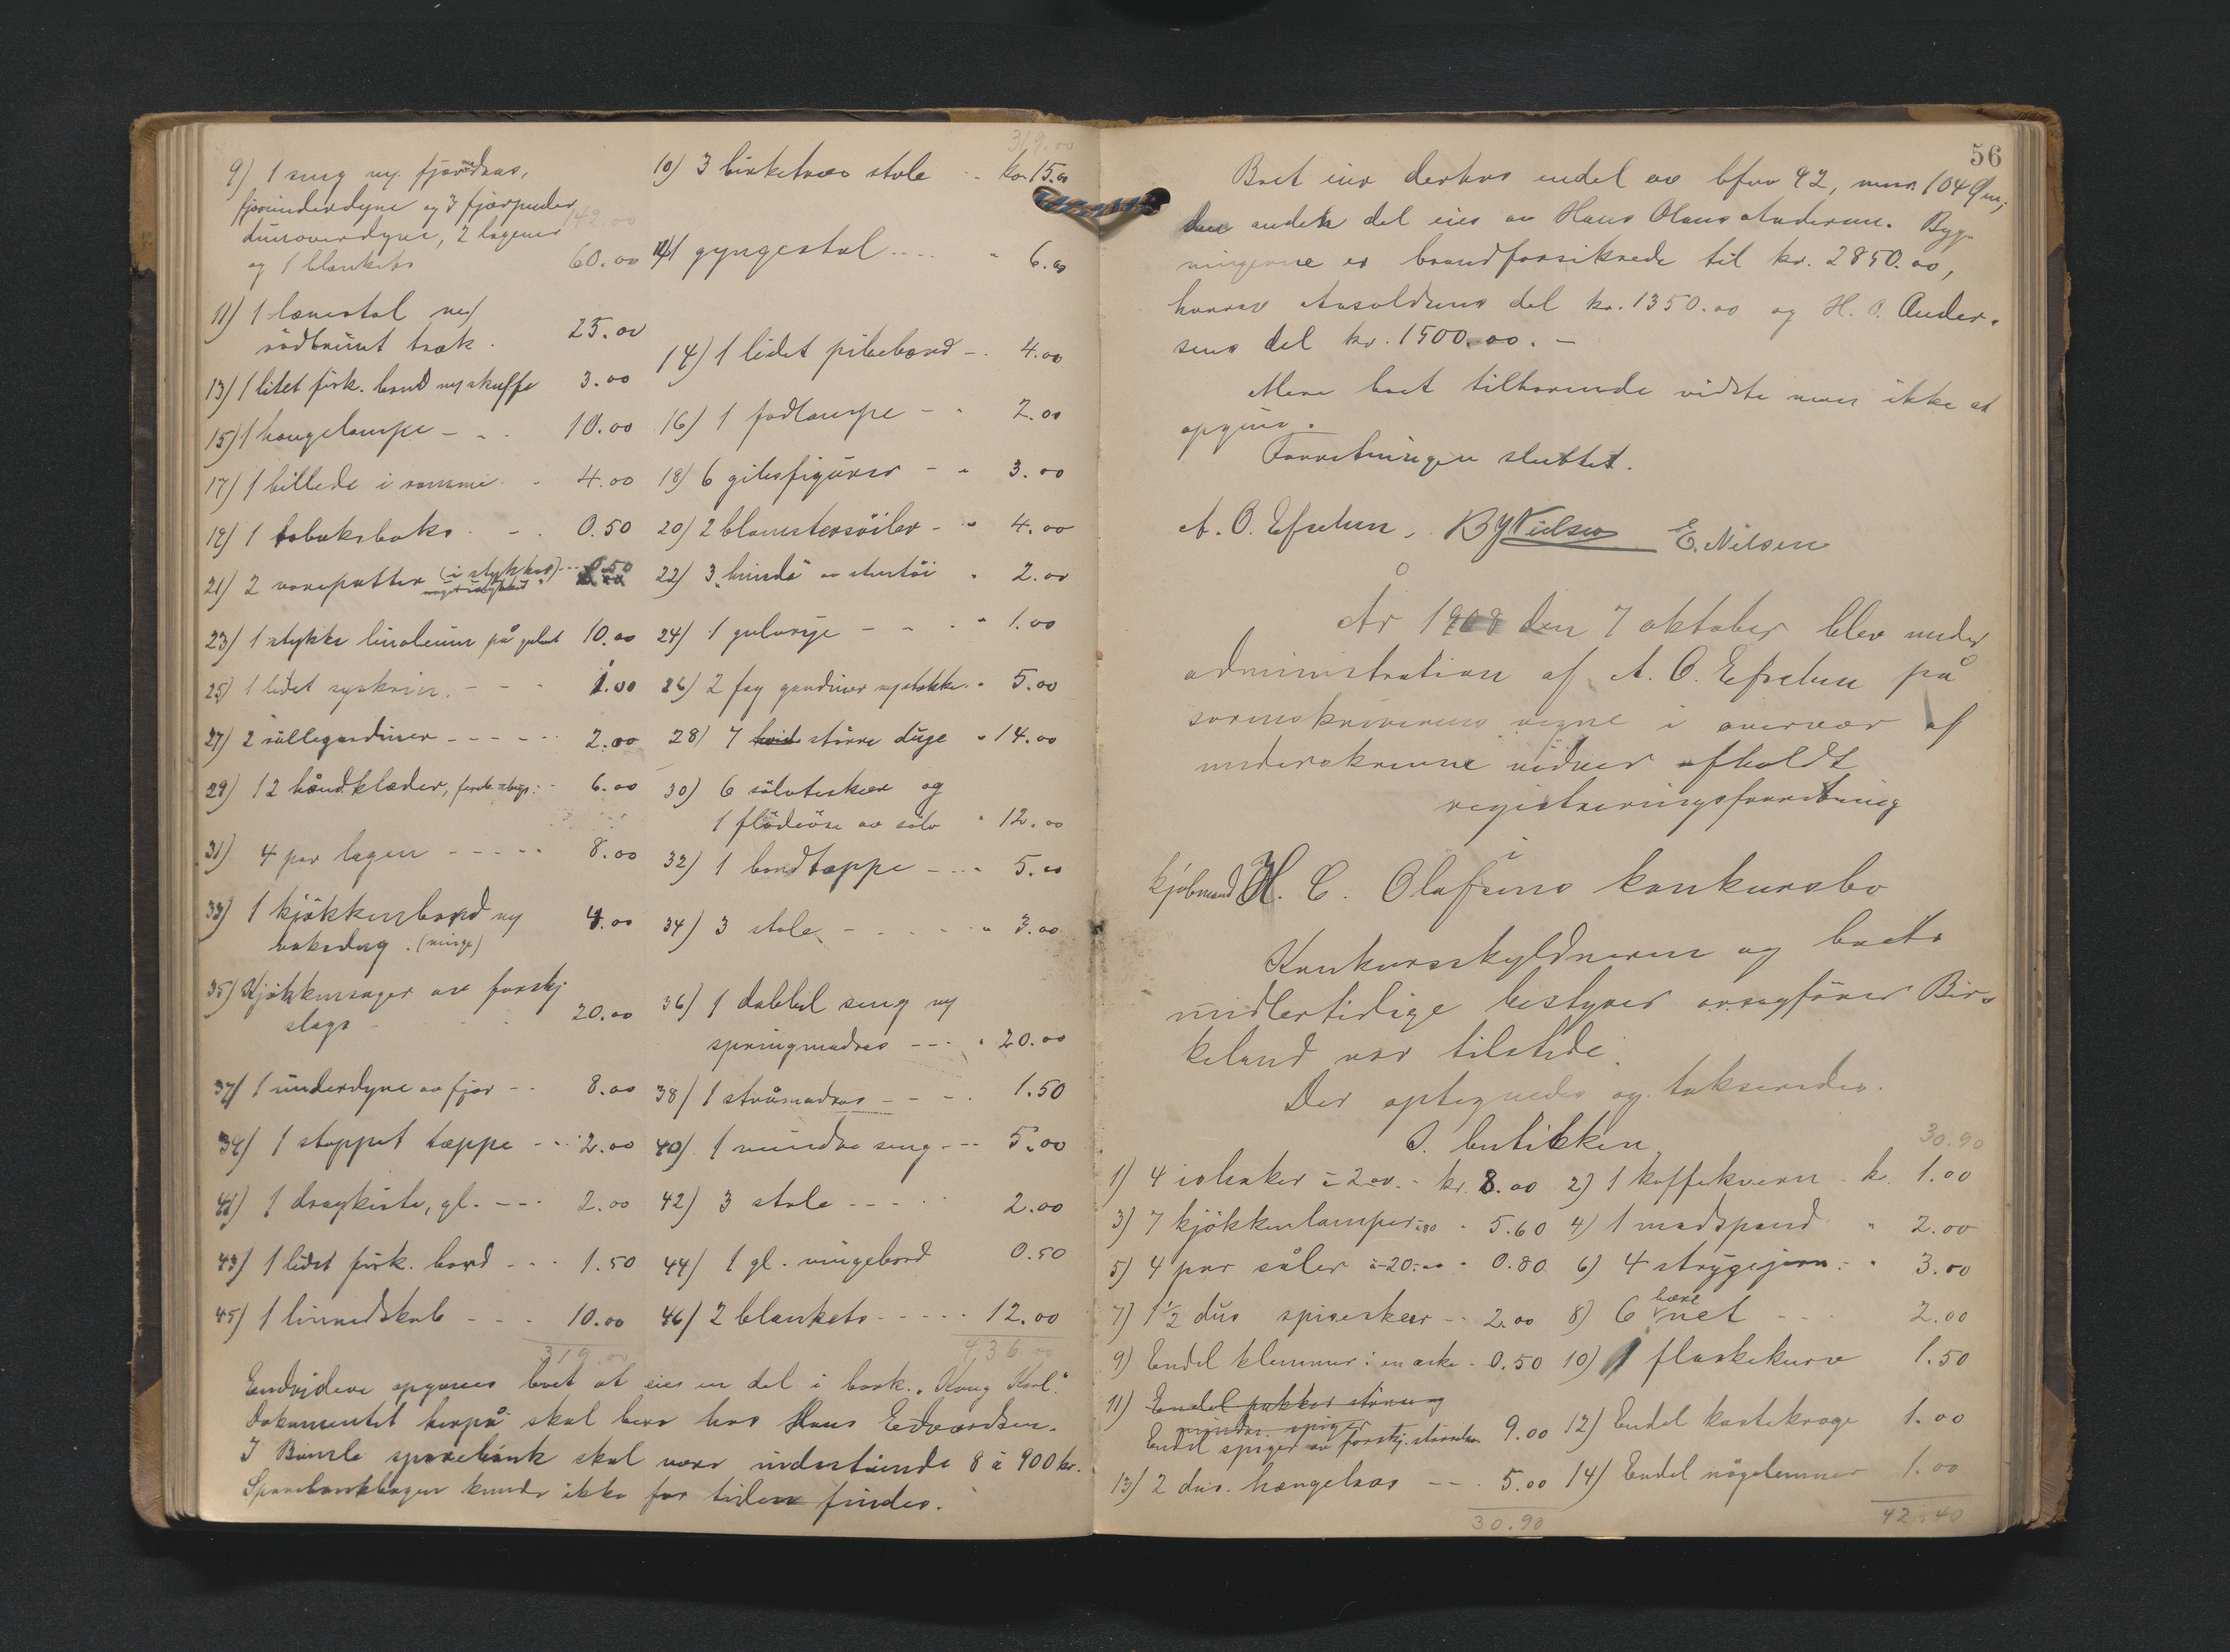 9) 1 seng m/ fjærmadras,
fjærunderdyne og 3 fjærputer
dunoverdyne, 2 lagener 142.00
og 1 blankets 60.00
11) 1 lænestol m/
rödbrunt træk. 25.00
13) 1 litet firk. bord m/ skuffe 3.00
15) 1 hængelampe - - . 10.00
17) 1 billede i ramme - 4.00
19) 1 tobaksboks - - . 0.50
21) 2 (i stykker) --- 0.50
23) 1 stykke linoleum på gulvet 10.00
25) 1 lidet syskrin. - - - 1.00
27) 2 rullegardiner - - - - - 2.00
29) 12 håndklæder, forsk. slags. - 6.00
31) 4 par lagen - - - - - 8.00
33) 1 kjökkenbord m/ 4.00
voksdug.
35) Kjökkensager av forskj.
slags - - . 20.00
37) 1 underdyne av fjær - - 8.00
39) 1 stoppet tæppe - - . 2.00
41) 1 dragkiste, gl. - - - 2.00
43) 1 lidet firk. bord - - . 1.50
45) 1 linnedskab - - . 10.00
319.00
319.00
10) 3 birketræs stole - . kr. 15.00
12) 1 gyngestol .... " 6.00
14) 1 lidet pibebord - . 4.00
16) 1 fodlampe - . 2.00
18) 6 gibsfigurer - " 3.00
20) 2 blomstersöiler - " 4.00
22) 3 av stentöi " 2.00
24) 1 - - . " 1.00
26) 2 fag gardiner m/ stokke. " 5.00
28) 7 hvide större duge " 14.00
30) 6 sölvteskeer og
1 flödeöse av sölv " 12.00
32) 1 bordtæppe - . . " 5.00
34) 3 stole - - - . . " 3.00
36) 1 dobbel seng m/
springmadras - - - " 20.00
38) 1 stråmadras - - - . 1.50
40) 1 mindre seng - - - 5.00
42) 3 stole - - - 2.00
44) 1 gl. bord 0.50
46) 2 blankets - - - - - 12.00
436.00
Endvidere opgaves boet at eie en del i bark. "Kong Karl".
Dokumentet herpå skal bero hos Hans Edvardsen.
I Bamle sparebank skal være indestående 8 à 900 kr.
Sparebankbogen kunde ikke for tiden findes.
56
Boet eier derhos endel av bfnr 42, mnr. 104
den anden del eies av Hans Olaus Andersen. Byg-
ningerne er brandforsikrede til kr. 2850.00,
hvorav del kr. 1350.00 og H. O. Ander-
sens del kr. 1500.00. -
Mere boet tilhörende vidste man ikke at
opgive.
Forretningen sluttet.
A. O. Efselsen, B Y Nielsen E. Nilsen
År 1908 den 7 oktober blev under
administration af A. O. Efselsen på
sorenskriverens vegne i overvær af
underskrevne vidner afholdt
registreringsforretning
i
kjöbmand H. C. Olafsens konkursbo
Konkursskyldneren og boets
midlertidige bestyrer orsagförer Bir-
keland var tilstede.
Der optegnedes og takseredes.
I butikken 30.90
1) 4 ishaker à 2.00. - kr. 8.00 2) 1 kaffekvern - kr. 1.00
3) 7 kjökkenlamper à 80 " 5.60 4) 1 madspand " 2.00
5) 4 par såler à - 20 " 0.80 6) 4 strygejern - " 3.00
7) 1 1/2 dus spiseskeer - - 2.00 8) 6 bære net - - . 2.00
9) Endel klemmer i en æske - 0.50 10) 1 flaskekurv 1.50
11) Endel pakker större og
mindre spiger
Endel spiger av forskj. störrelse 9.00 12) Endel kastekroge 1.00
13) 2 dus. hængelaas - - . 5.00 14) Endel 1.00
30.90 42.40